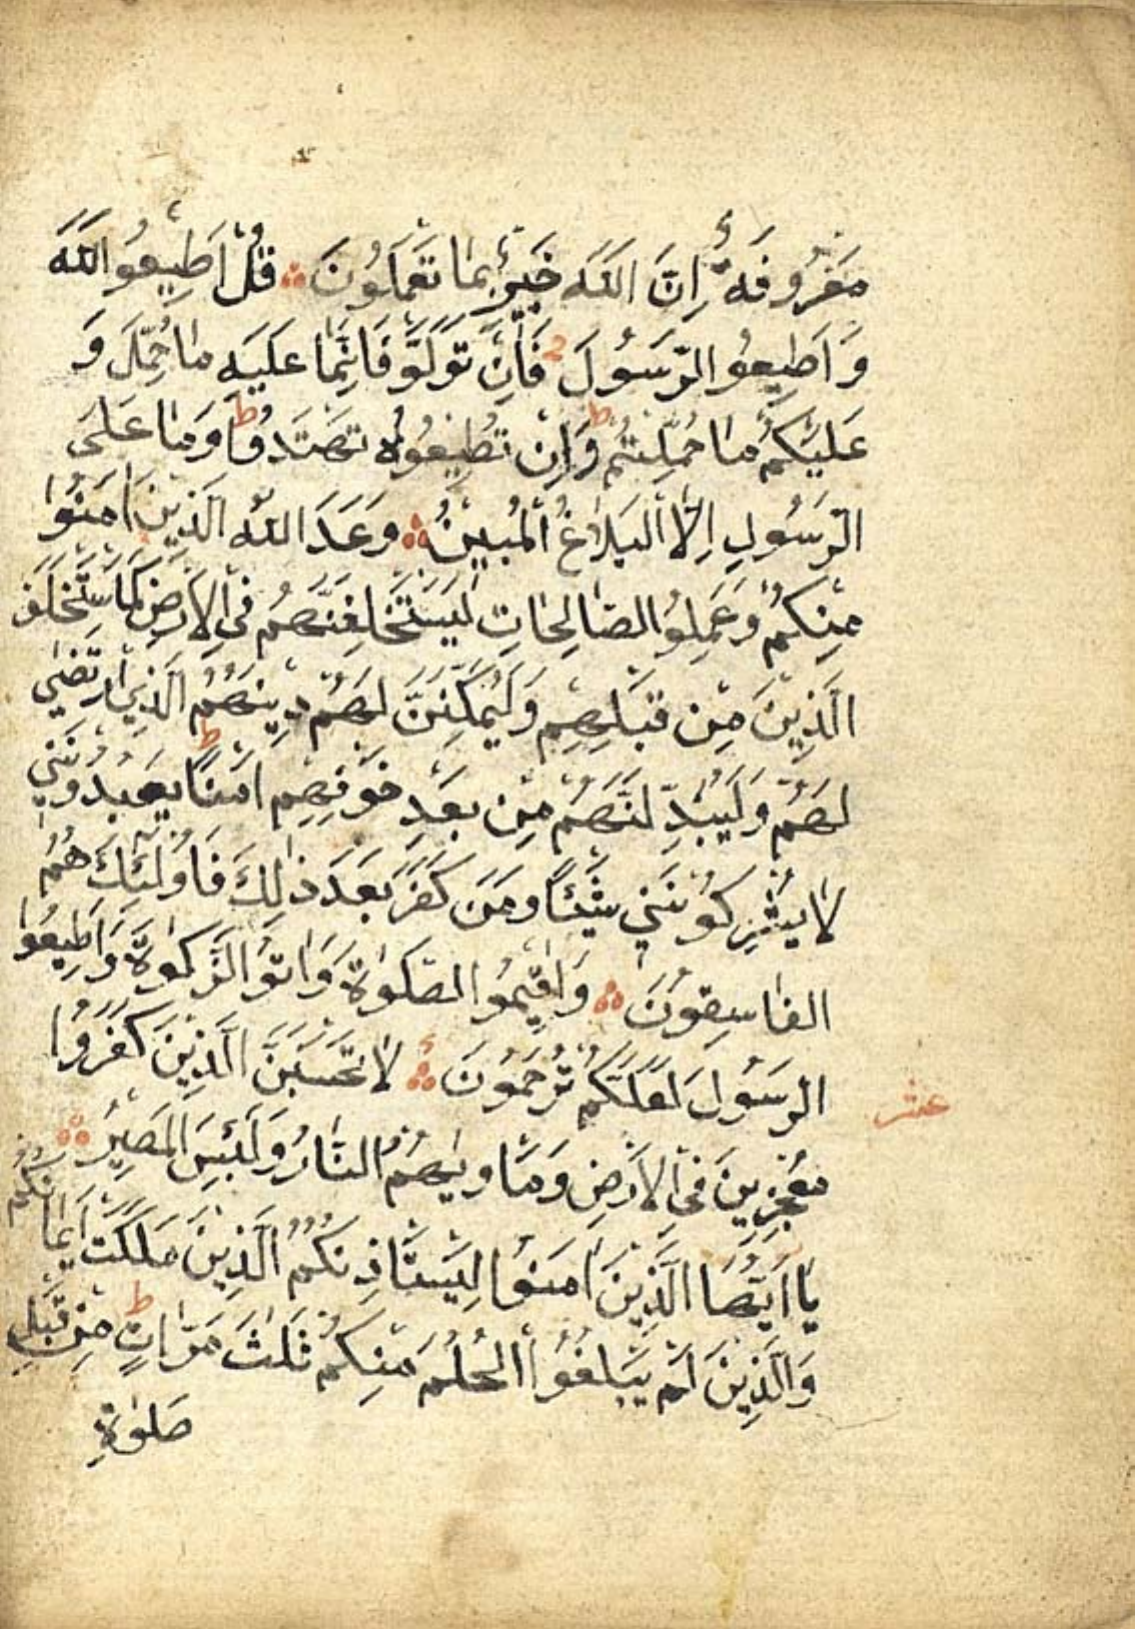 مَعْرُوفَةٌ إِنَّ اللَّهَ خَبِيرٌ بِمَا تَعْمَلُونَ ۞ قُلْ اَطِيعُوا اللَّهَ
وَاَطِيعُوا الرَّسُولَ فَاِنْ تَوَلَّوْ فَاِنَّمَا عَلَيْهِ مَا حُمِّلَ وَ
عَلَيْكُمْ مَا حُمِّلْتُمْ ط وَاِنْ تُطِيعُوهُ تَهْتَدُوا ط وَمَا عَلَى
الرَّسُولِ اِلَّا الْبَلَاغُ الْمُبِينُ ۞ وَعَدَ اللَّهُ الَّذِينَ اٰمَنُوا
مِنْكُمْ وَعَمِلُوا الصَّالِحَاتِ لَيَسْتَخْلِفَنَّهُمْ فِى الْاَرْضِ كَمَا اسْتَخْلَفَ
الَّذِينَ مِنْ قَبْلِهِمْ وَلَيُمَكِّنَنَّ لَهُمْ دِينَهُمُ الَّذِى ارْتَضٰى
لَهُمْ وَلَيُبَدِّلَنَّهُمْ مِنْ بَعْدِ خَوْفِهِمْ اَمْنًا ط يَعْبُدُونَنِي
لَا يُشْرِكُونَ بِي شَيْئًا وَمَنْ كَفَرَ بَعْدَ ذٰلِكَ فَاُولٰئِكَ هُمُ
الْفَاسِقُونَ ۞ وَاَقِيمُوا الصَّلٰوةَ وَاٰتُوا الزَّكٰوةَ وَاَطِيعُوا
الرَّسُولَ لَعَلَّكُمْ تُرْحَمُونَ ۞ لَا تَحْسَبَنَّ الَّذِينَ كَفَرُوا
عشر
مُعْجِزِينَ فِى الْاَرْضِ وَمَاْوٰيهُمُ النَّارُ وَلَبِئْسَ الْمَصِيرُ ۞
يَا اَيُّهَا الَّذِينَ اٰمَنُوا لِيَسْتَاْذِنْكُمُ الَّذِينَ مَلَكَتْ اَيْمَانُكُمْ
وَالَّذِينَ لَمْ يَبْلُغُوا الْحُلُمَ مِنْكُمْ ثَلٰثَ مَرَّاتٍ ط مِنْ قَبْلِ
صَلٰوةِ